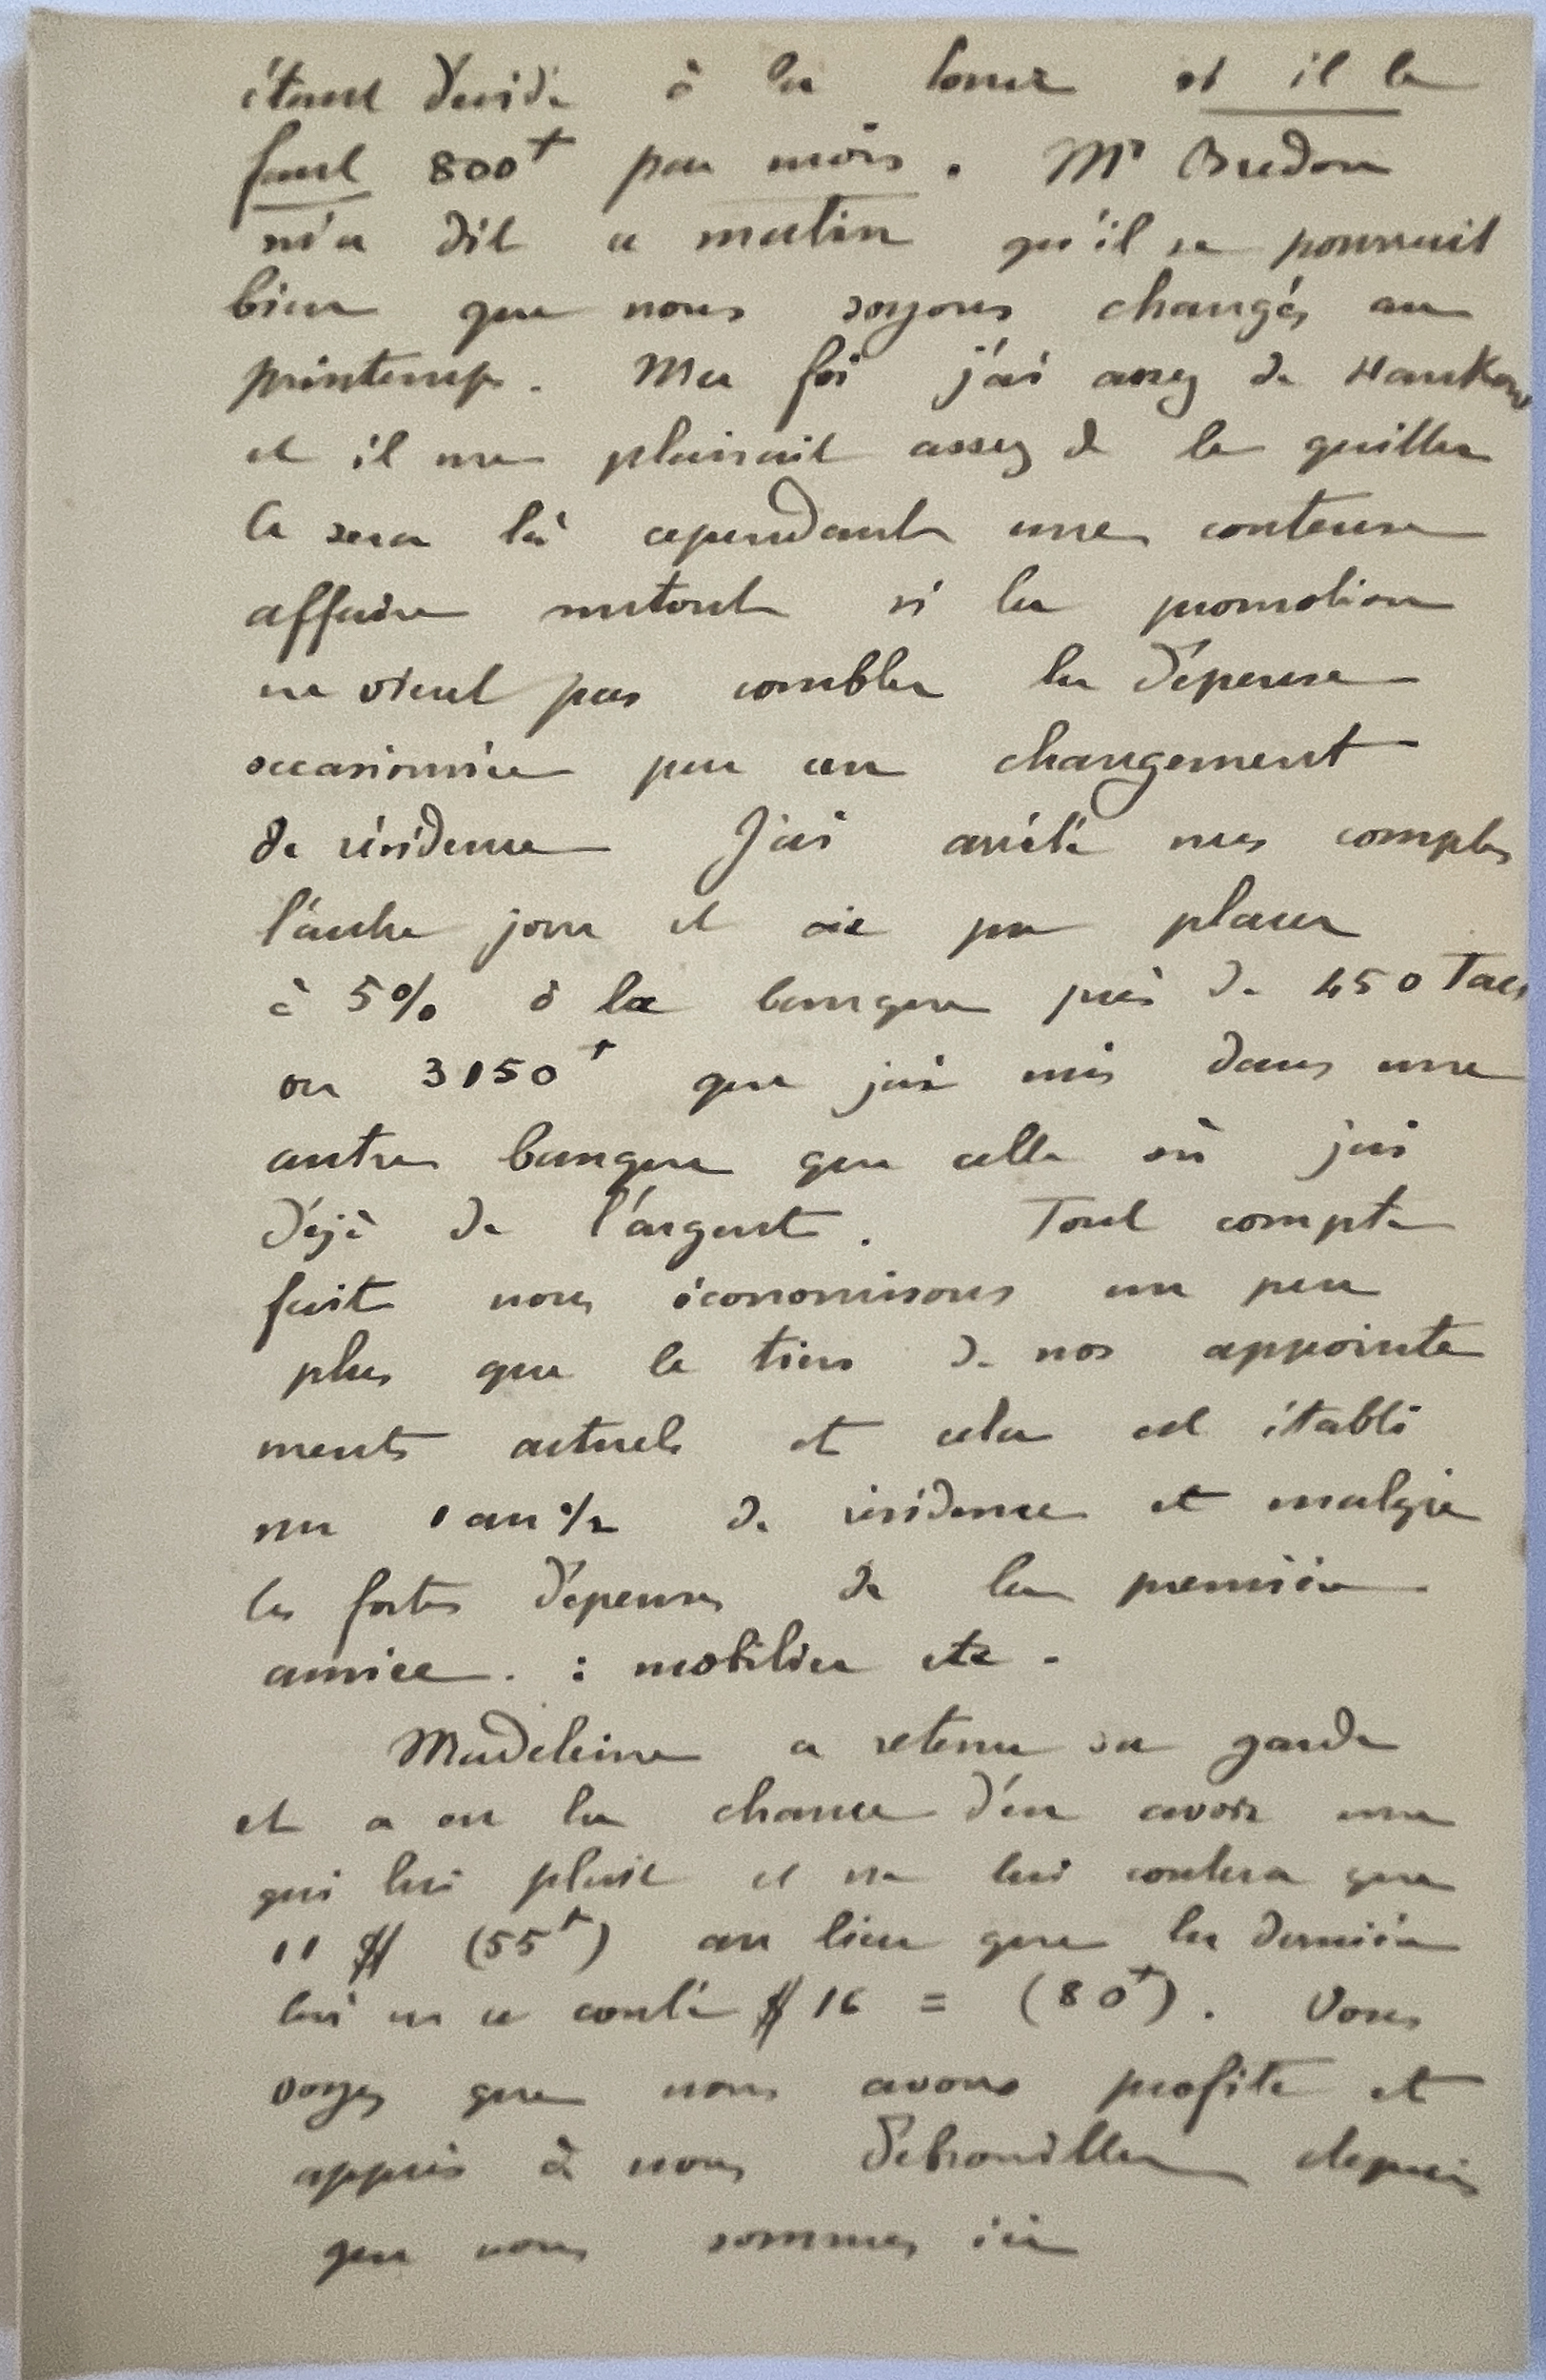 étant décidé à la louer et il le
faut 800f par mois. Mr Bredon
m'a dit ce matin qu'il se pourrait
bien que nous soyons changés au
printemps. Ma foi j'ai assez de Hankow
et il me plairait assez de le quitter
Ce sera là cependant une couteuse
affaire surtout si la promotion
ne vient pas combler la dépense
occasionnée par un changement
de résidence J'ai arrêté mes comptes
l'autre jour et ai pu placer
à 5% à la banque près de 450 Taels
ou 3150f que j'ai mis dans une
autre banque que celle où j'ai
déjà de l'argent. Tout compte
fait nous économisons un peu
plus que le tiers de nos appointe
ments actuels et cela est établi
sur 1 an 1/2 de résidence et malgré
les fortes dépenses de la première
année. : mobilier etc.
Madeleine a retenu sa garde
et a eu la chance d'en avoir une
qui lui plait et ne lui coutera que
11 $ (55f) au lieu que la dernière
lui en a couté $ 16 = (80f). Vous
voyez que nous avons profité et
appris à nous débrouiller depuis
que nous sommes ici